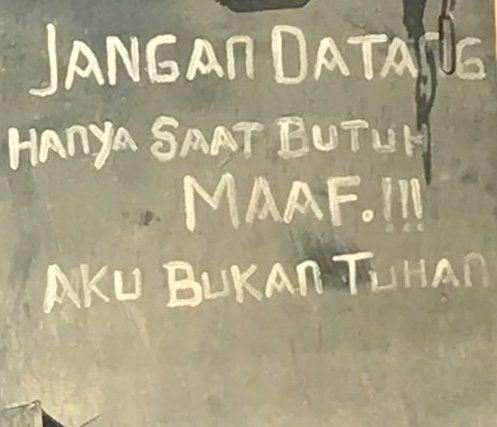 JANGAN DATANG
HANYA SAAT BUTUH
MAAF.!!!
AKU BUKAN TUHAN